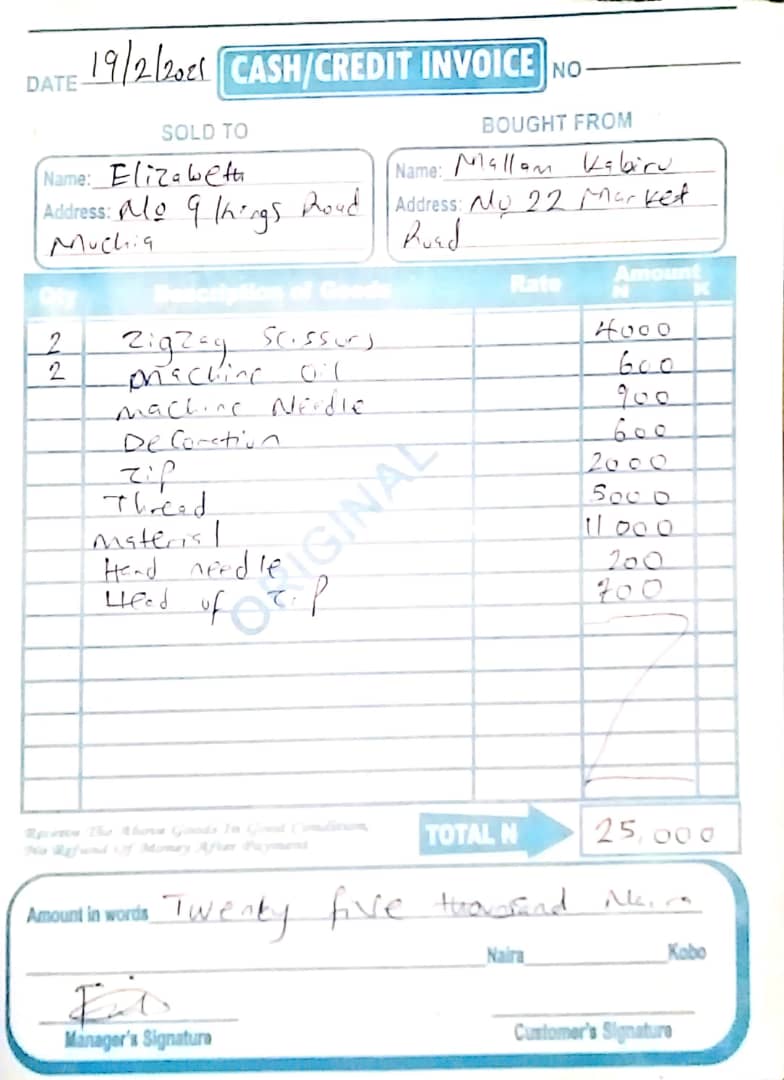 DATE 19/2/2021 CASH/CREDIT INVOICE NO
SOLD TO
BOUGHT FROM
Name: Elizabeth
Address: No 9 Kings Road
Muchia
Name: Mallam Kabiru
Address: No 22 Market
Road
Qty Description of Goods Rate Amount
N K
2 Zigzag Scissors 4000
2 Machine Oil 600
Machine Needle 900
Decoration 600
Zip 2000
Thread 5000
Material 11000
Hand needle 200
Head of Zip 700
ORIGINAL
Receive The Above Goods In Good Condition,
No Refund Of Money After Payment
TOTAL N 25,000
Amount in words Twenty five thousand Naira
Naira Kobo
Manager's Signature
Customer's Signature